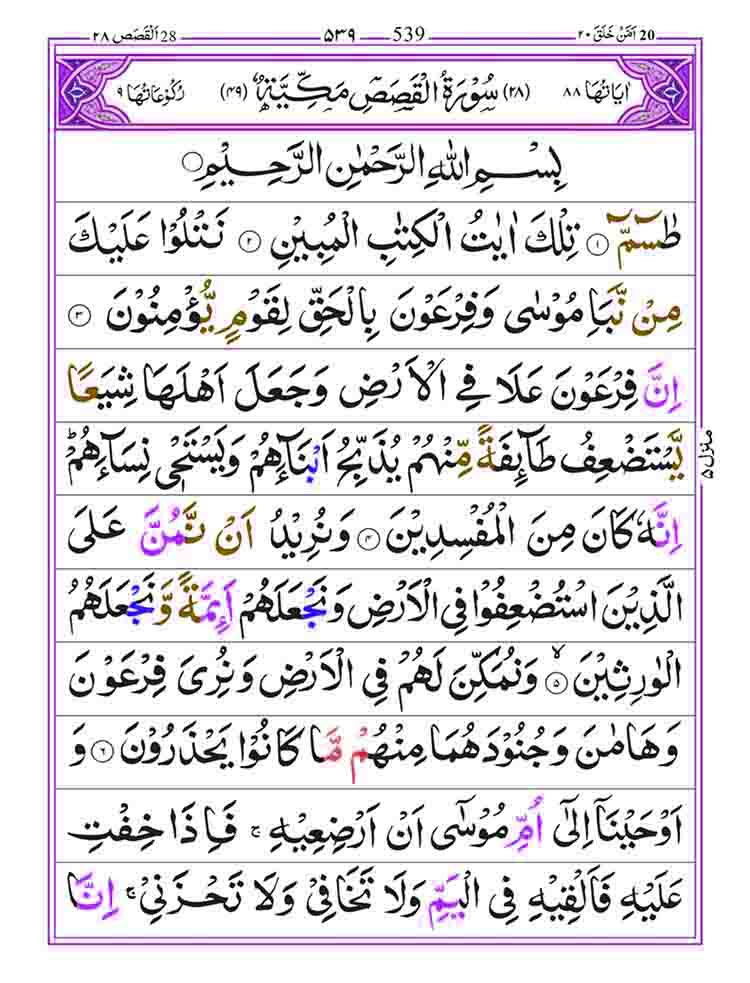 20 اَمَّنْ خَلَقَ ٢٠ 539 ٥٣٩ 28 اَلْقَصَص ٢٨
اٰیَاتُهَا ٨٨ (٢٨) سُوْرَةُ الْقَصَصِ مَكِّیَّةٌ (٤٩) رُكُوْعَاتُهَا ٩
بِسْمِ اللّٰهِ الرَّحْمٰنِ الرَّحِیْمِ
طٰسٓمّٓ ١ تِلْكَ اٰیٰتُ الْكِتٰبِ الْمُبِیْنِ ٢ نَتْلُوْا عَلَیْكَ
مِنْ نَّبَاِ مُوْسٰى وَفِرْعَوْنَ بِالْحَقِّ لِقَوْمٍ یُّؤْمِنُوْنَ ٣
اِنَّ فِرْعَوْنَ عَلَا فِی الْاَرْضِ وَجَعَلَ اَهْلَهَا شِیَعًا
یَّسْتَضْعِفُ طَآىِٕفَةً مِّنْهُمْ یُذَبِّحُ اَبْنَآءَهُمْ وَیَسْتَحْیٖ نِسَآءَهُمْ ؕ
اِنَّهٗ كَانَ مِنَ الْمُفْسِدِیْنَ ٤ وَنُرِیْدُ اَنْ نَّمُنَّ عَلَى
الَّذِیْنَ اسْتُضْعِفُوْا فِی الْاَرْضِ وَنَجْعَلَهُمْ اَىِٕمَّةً وَّنَجْعَلَهُمُ
الْوٰرِثِیْنَ ۙ ٥ وَنُمَكِّنَ لَهُمْ فِی الْاَرْضِ وَنُرِیَ فِرْعَوْنَ
وَهَامٰنَ وَجُنُوْدَهُمَا مِنْهُمْ مَّا كَانُوْا یَحْذَرُوْنَ ٦ وَ
اَوْحَیْنَاۤ اِلٰۤى اُمِّ مُوْسٰۤى اَنْ اَرْضِعِیْهِ ۚ فَاِذَا خِفْتِ
عَلَیْهِ فَاَلْقِیْهِ فِی الْیَمِّ وَلَا تَخَافِیْ وَلَا تَحْزَنِیْ ۚ اِنَّا
منزل ٥